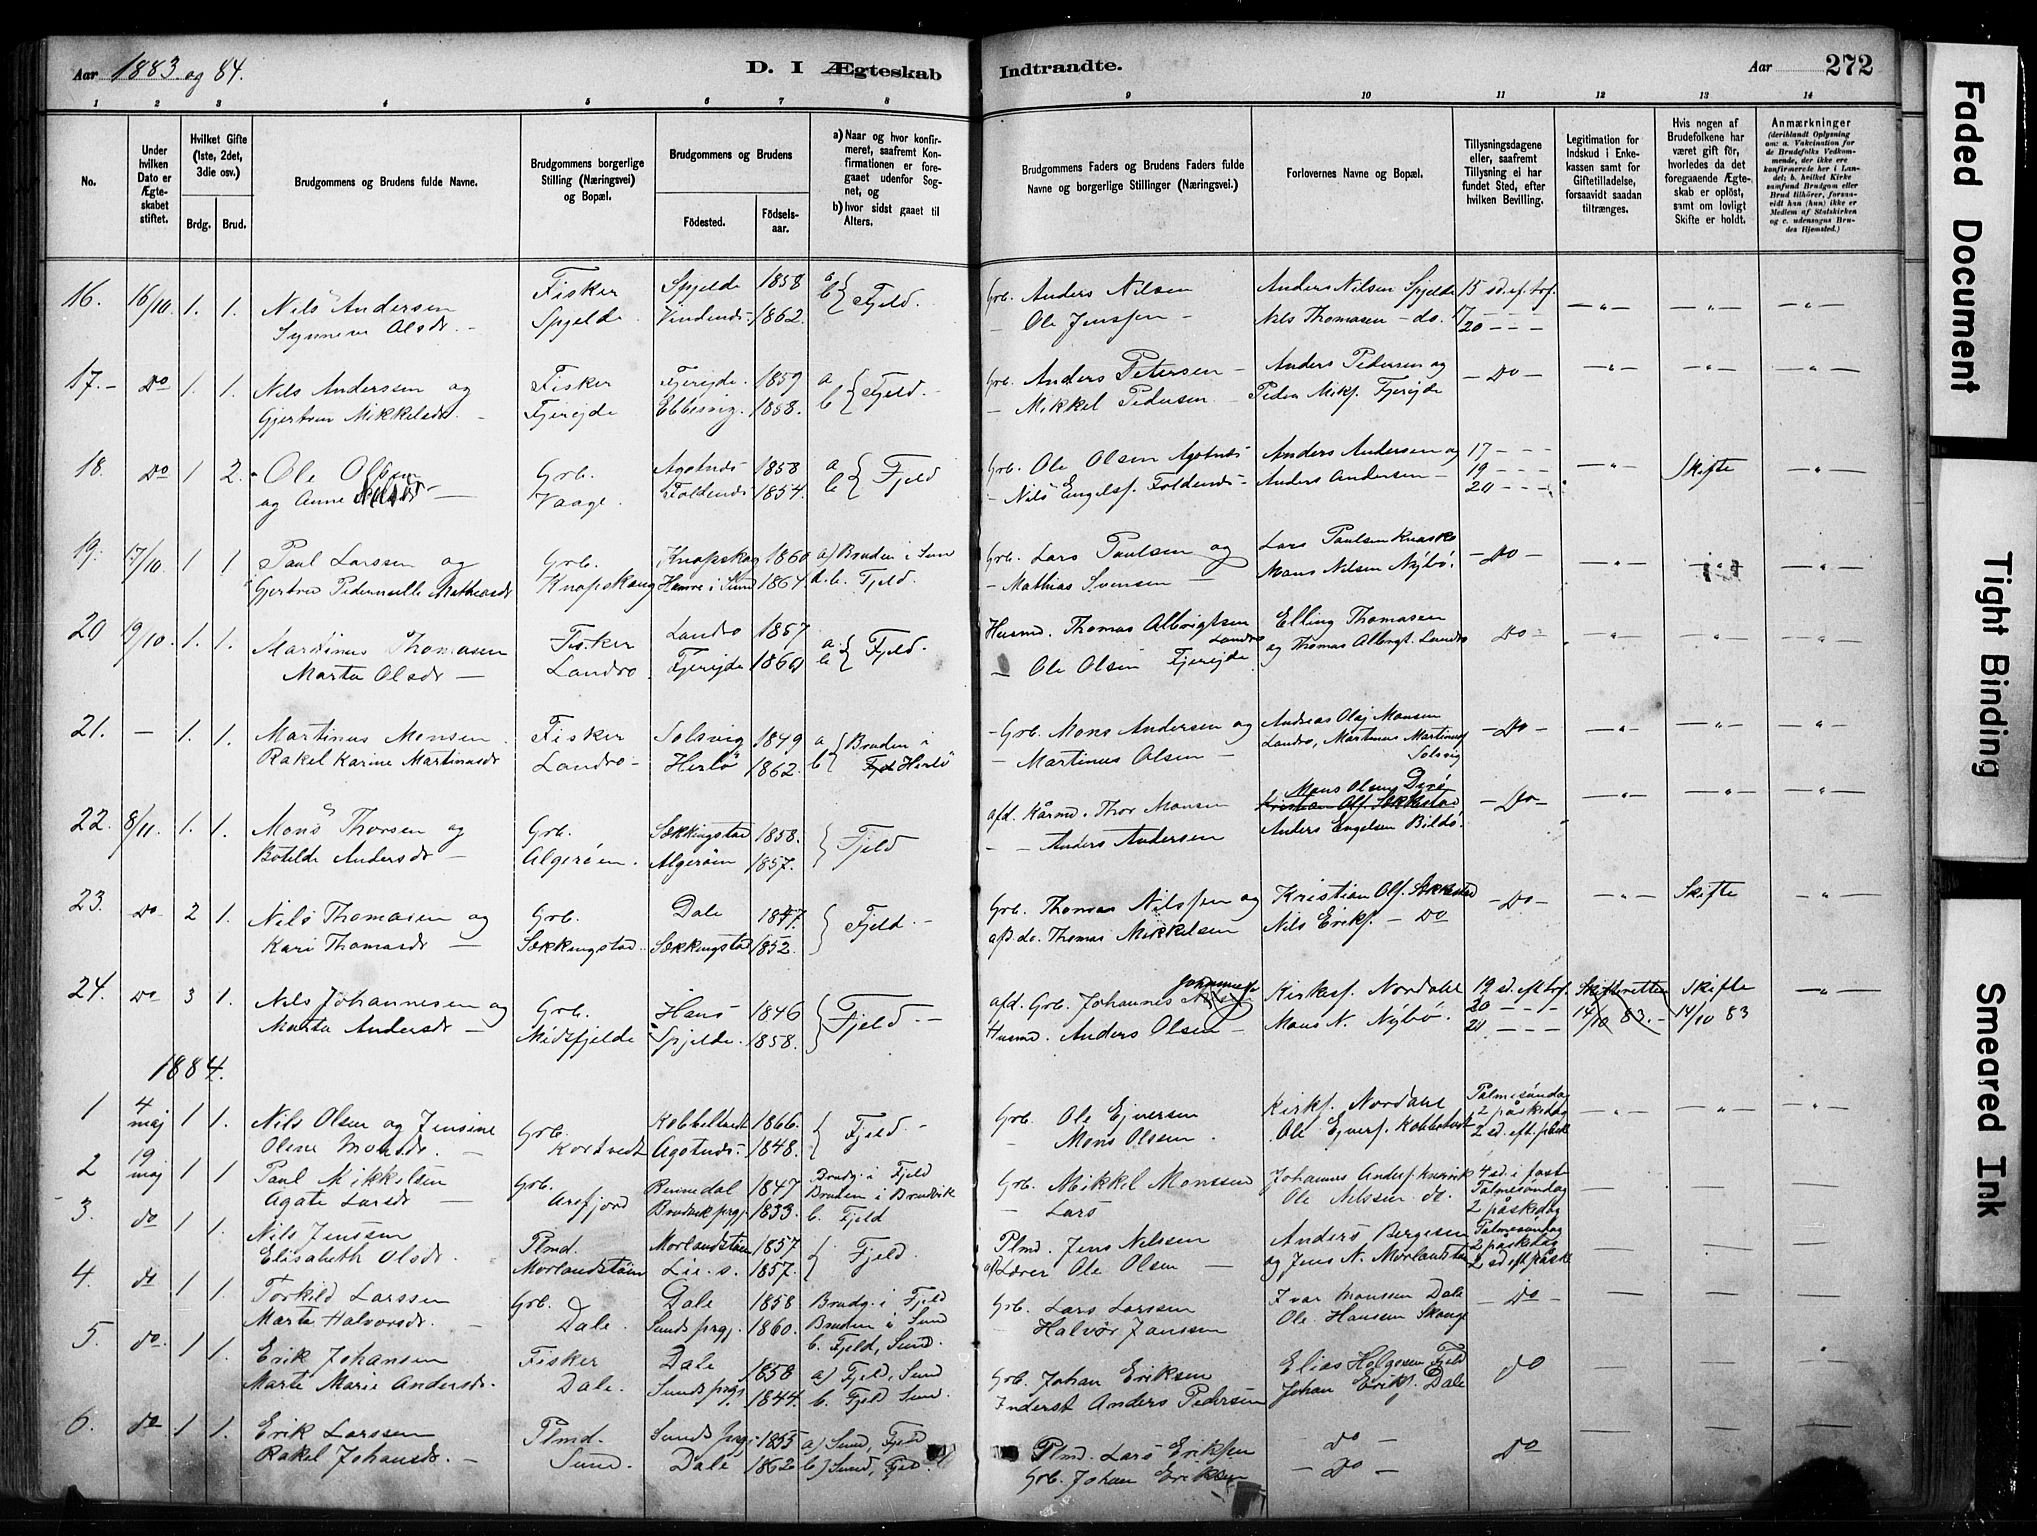 Aar 1883 og 84.
D. I Ægteskab
Indtraadte.
Aar
272
1 2 3 4 5 6 7 8 9 10 11 12 13 14
No.
Under hvilken Dato er Ægteskabet stiftet.
Hvilket Gifte (1ste, 2det, 3die osv.)
Brdg. Brud.
Brudgommens og Brudens fulde Navne.
Brudgommens borgerlige Stilling (Næringsvei) og Bopæl.
Brudgommens og Brudens
Födested.
Födselsaar.
a) Naar og hvor konfirmeret, saafremt Konfirmationen er foregaaet udenfor Sognet, og
b) hvor sidst gaaet til Alters.
Brudgommens Faders og Brudens Faders fulde Navne og borgerlige Stillinger (Næringsvei.)
Forlovernes Navne og Bopæl.
Tillysningsdagene eller, saafremt Tillysning ei har fundet Sted, efter hvilken Bevilling.
Legitimation for Indskud i Enkekassen samt for Giftetilladelse, forsaavidt saadan tiltrænges.
Hvis nogen af Brudefolkene har været gift för, hvorledes da det foregaaende Ægteskab er oplöst, samt om lovligt Skifte er holdt.
Anmærkninger
(deriblandt Oplysning om: a. Vakcination for de Brudefolks Vedkommende, der ikke ere konfirmerede her i Landet; b. hvilket Kirkesamfund Brudgom eller Brud tilhörer, forsaavidt han (hun) ikke er Medlem af Statskirken og c. udensogns Brudes Hjemsted.)
16. 16/10. 1. 1. Nils Andersen Fisker Spjelde 1858 a b Fjeld. Grb. Anders Nilsen Anders Nilsen Spjelde 15 sd. ef. trf.
Synneve Olsdr. Spjelde. 1862. - Ole Jenssen - Nils Thomasen - do. 17 - - - 20 - - -
17. - Do 1. 1. Nils Anderssen og Fisker Fjereide. 1859 a b Fjeld. - Grb. Anders Petersen - Anders Pedersen og - Do -
Gjertru Mikkelsdr. - Fjereide Ebbesvig. 1858. - Mikkel Pedersen - Peder Miks. Fjereide
18. Do 1 2. Ole Olsen Grb. Agotnes 1858 a b Fjeld Grb. Ole Olsen Agotnes Anders Andersen og 17 - - - Skifte
og Anne Nilsdr - Vaage. Foldenes 1854. - Nils Engelss. Foldenes - Anders Andersen - 19 - - - 20 - - -
19. 17/10. 1 1 Paul Larssen og Grb. Knapskog 1860 a) Bruden i Sund Grb. Lars Paulsen og Lars Paulsen - Do -
Gjertru Mathiasdr Knapskaug i Sund 1864. b. Fjeld. - Mathias Svensen - Mons Nilsen Nybø.
20 19/10. 1. 1. Martinus Thomasen Fisker Landro 1857 a b Fjeld. Husmd. Thomas Albrigtsen Landro Elling Thomasen - Do -
Marta Olsdr - Landro. Fjereide - Ole Olsen Fjereide og Thomas Albrgt. Landro
21. - 1. 1. Martinus Monsen Fisker Solsvig 1849 a b Bruden i Herlö - Grb. Mons Andersen og Andreas Olaj Monsen - Do -
Rakel Karine Martinusdr Landro - Herlö 1862. - Martinus Olsen - Landro, Martinus Martinus Solsvig
22. 8/11. 1. 1. Mons Thorsen og Grb. Sækkingstad 1858. Fjeld afd. Kårmd. Thor Monsen Mons Olsen - Do -
Botilde Andersdr - Algerøen. Algerøen 1857. - - Anders Andersen Anders Engelsen Bildø.
23. Do 2 1. Nils Thomasen og Grb. Dale Fjeld. - Grb. Thomas Nilssen og Kristian Ols. - Do - Skifte
Kari Thomasdr - Sækkingstad. Sækkingstad 1852. afd. do. Thomas Mikkelsen Nils Eriks. - Do
24. Do 3 1. Nils Johannesen og Grb. 1846 Fjeld - afd. Grb. Johannes Kirkes. Nordahl 19 sd. eft trf. Skifteretten Skifte
Marta Andersdr - Midtfjelde Spjelde. 1858. Husmd. Anders Olsen - Mons N. Nybø. 20 - - - 21 - - - 14/10 83. - 14/10 83
1884.
1 4 maj 1 1. Nils Olsen og Jensine Grb. Kobbeltvedt 1866. Fjeld - Grb. Ole Ejversen Kirks. Nordahl Palmesøndag
Oline Monsdr. - Kortvedt Agotnes - 1848. " Mons Olssen. Ole Ejvers. Kobbeltvedt 2 påskedag 2 sd. eft. påske
2 19 maj 1 1 Paul Mikkelsen Grb. Rennedal 1847 Brudg. i Fjeld Grb. Mikkel Monssen Johannes Anders. 4 sd. i faste
Agate Larsdr - Arefjord 1833. Bruden i Bruvik b. Fjeld - Lars Ole Nilssen do. Palmesøndag 2 påskedag
3. do 1 1. Nils Jenssen Plmd. Morlandstøen 1857. Fjeld. Plmd. Jens Nilssen Anders Bergesen Palmesøndag
Elisabeth Olsdr. Morlandstøen Lie. s. 1857. Lærer Ole Olsen - og Jens N. Morlandstøen 2 påskedag 2 sd eft påske
4. do 1 1. Torkild Larssen Grb. Dale 1858 Brudg. i Fjeld Grb. Lars Larssen Ivar Monssen Dale - Do -
Marta Halvorsdr. - Dale. Sunds prgj. 1860. Bruden i Sund b. Fjeld, Sund. Halvor Janssen Ole Hansen Skoge
5. do. 1 1. Erik Johansen Fisker Dale 1858 a) Fjeld, Sund Grb. Johan Eriksen Elias Fjeld do
Marte Marie Andersdr. Dale. Sunds prgj. 1844. b. Fjeld Sund. Inderst Anders Pedersen Johan Eriks. Dale
6. do 1 1. Erik Larssen Plmd. Sunds prgj. 1855 a) Sund, Fjeld Plmd. Lars Erikssen - do - Do
Rakel Johansdr. - Sund. Dale 1862 b) Sund, Fjeld. Grb. Johan Eriksen - Do -
Faded Document
Tight Binding
Smeared Ink